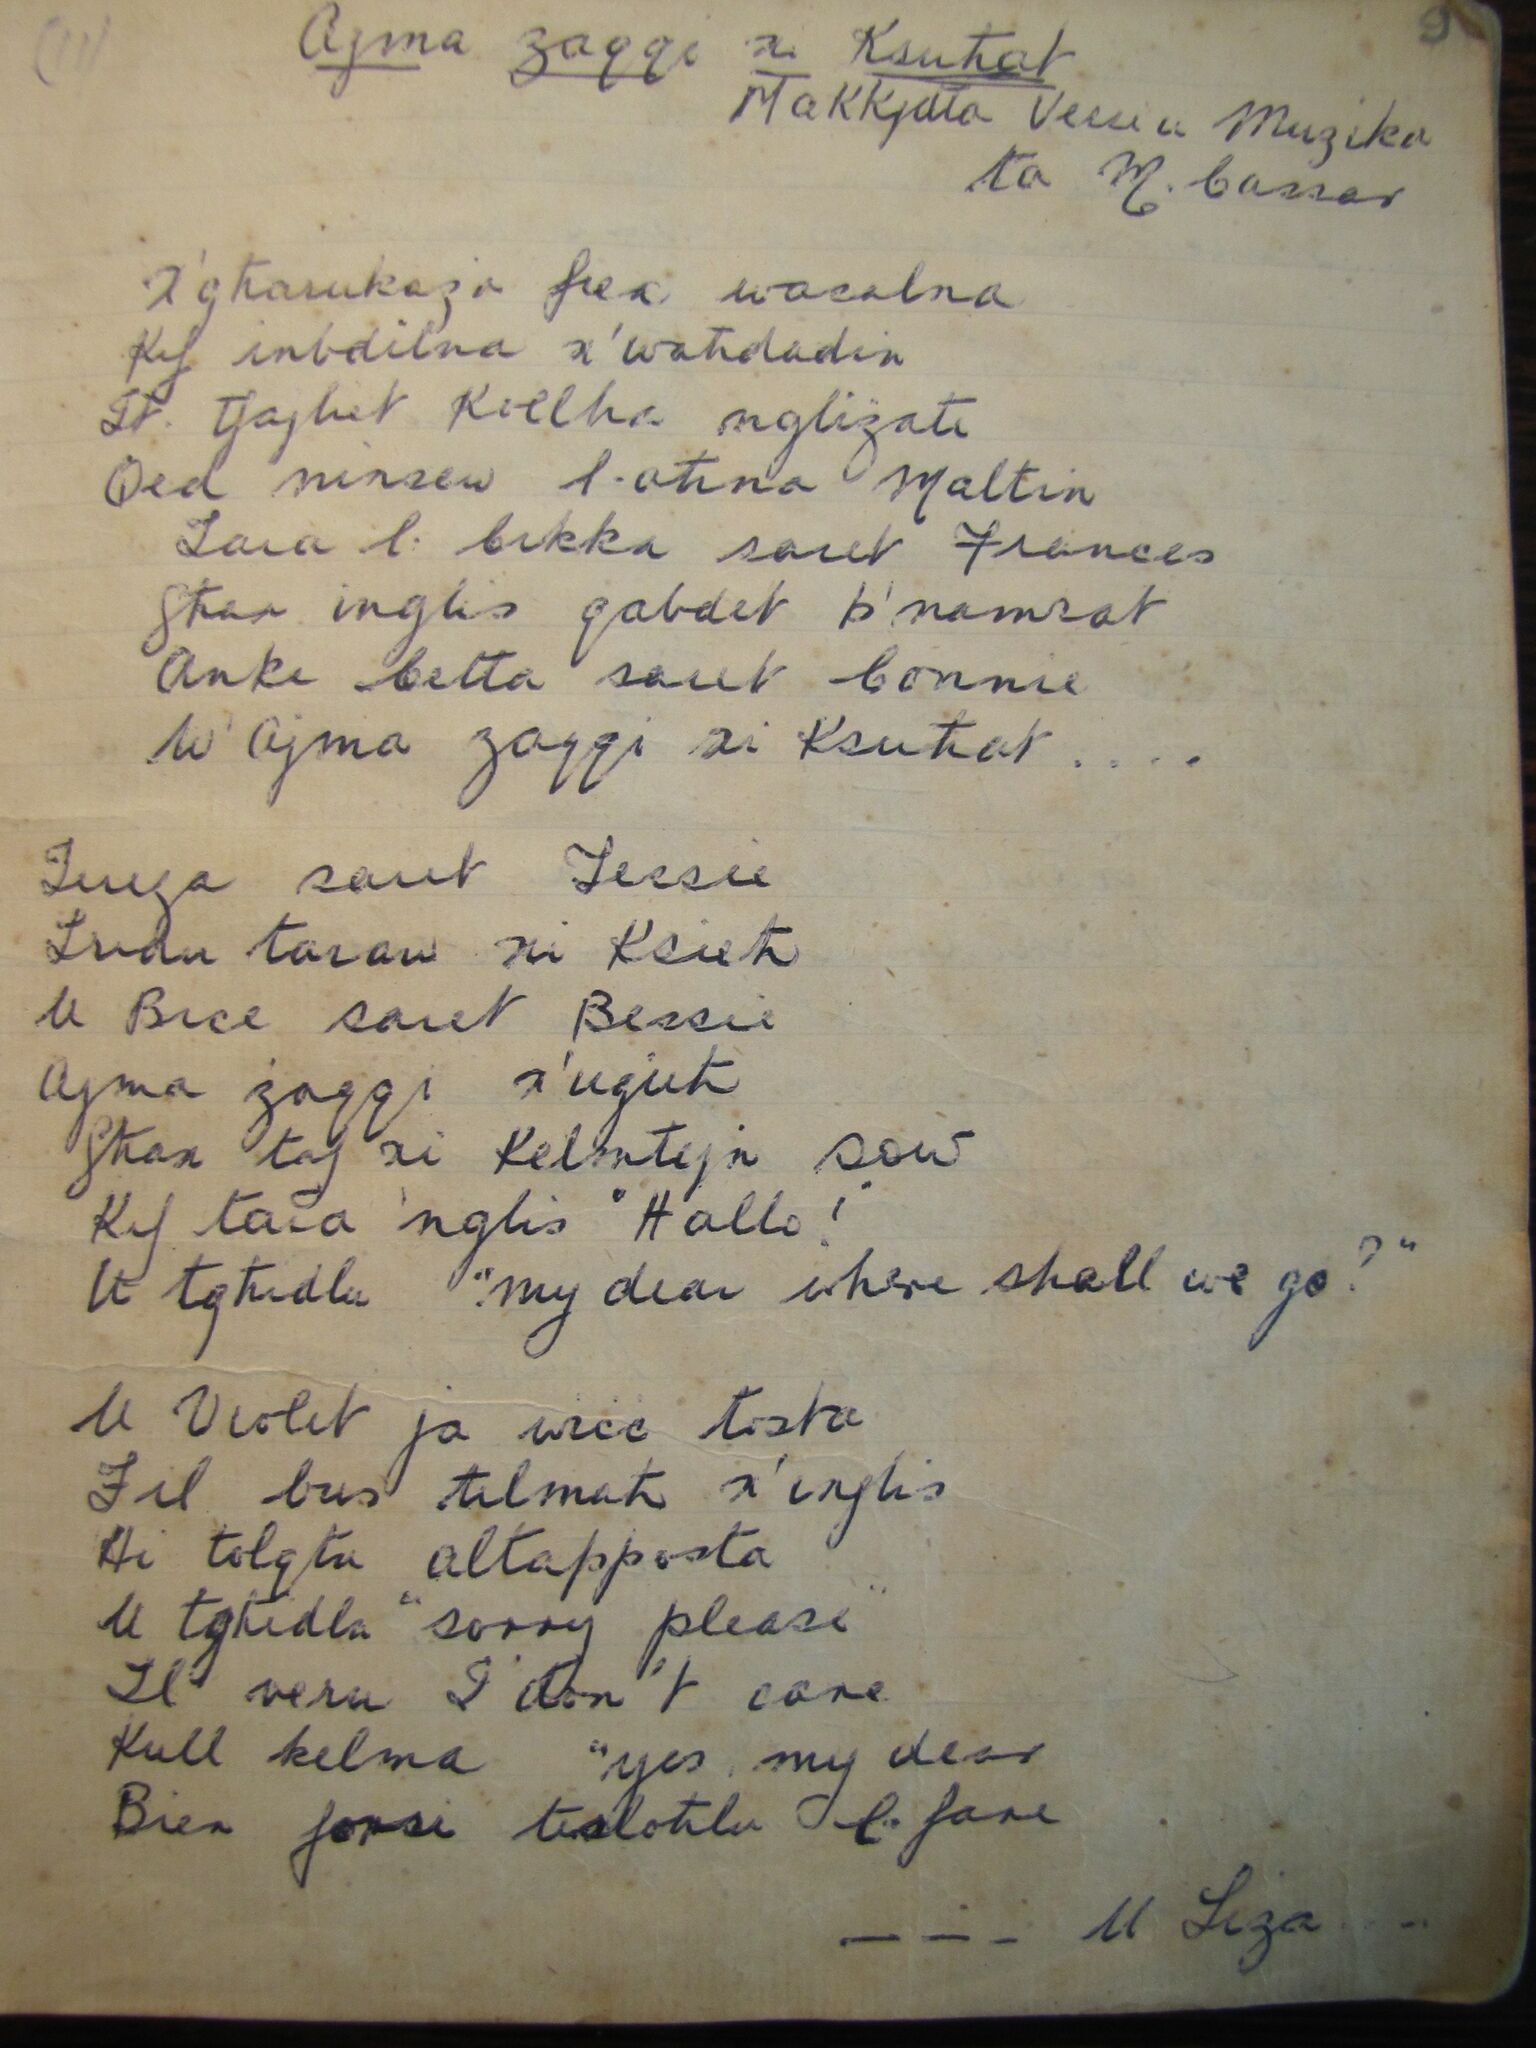 (11) 9
Ajma zaqqi x. Ksuhat
Makkjetta Versi u Muzika
ta M. Cassar
x'għarukaża fiex waċalna
Kif inbdilna x'waħdadin
It. tfajliet Kollha nglizati
Qed ninsew l-aħna Maltin
Tara l. Cikka saret Frances
Għax inglis qabdet b'namrat
Anki Cetta saret Connie
W Ajma zaqqi xi Ksuhat ....
Tereza saret Tessie
Tridu taraw xi Ksieħ
U Bice saret Bessie
Ajma żaqqi x'uġieħ
Għax taf xi Kelmtejn sow
Kif tara nglis "Hallo!"
U tgħidlu "my dear where shall we go?"
U Violet ja wiċċ tosta
Fil bus tilmaħ x'inglis
Hi tolqtu altapposta
U tgħidlu "sorry please"
Il veru I don't care
Kull kelma "yes my dear
Bien forsi tislaħlu l. fare
--- U Liza ...